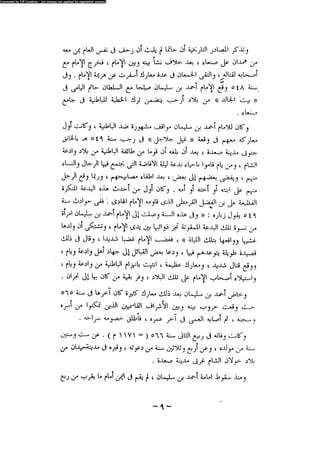 Converted by Tiff Combine - (no stamps are applied by registered version)
وتذكر المصادر التاريخية أن حاتما لم يلبث أن زحف في نفس العام بمن معه
من همدان على صنعاء ، بعد خلاف نشأ بينه وبين الإمام ، فخرج الإمام مع
أصحابه لقتاله ، والتقى الجمعان في عدة معارك أسفرت عن هزيمة الإمام . وفي
سنة ٥٤٨ وقع الإمام أحمد بن سليمان صلحا مع السلطان حاتم في اليامي في
« بيت الجالد » من بلاد أرحب يتضمن ترك الخطبة للباطنية في جامع
صنعاء .
وكان للامام أحمد بن سليمان مواقف مشهورة ضد الباطنية ، وكانت أول
معاركه معهم في وقعة « جلاجل » في رجب سنة ٥٤٩ هـ بالخانق
جنوبي مدينة صعدة ، بعد أن بلغه أن قوما من طائفة الباطنية من يام وادعة
الشام ، ومن يام وادعة أقاموا ليلة الافاضة التي يجتمع فيها الرجال والنساء
معهم ، ويفضي بعضهم إلى بعض ، بعد اطفاء مصابيحهم ، وربما وقع الرجل
على ابنته أو أخته أو أمه . وكان أول من أحدث هذه البدعة المنكرة
الفظيعة علي بن الفضل القرمطي الذي قاومه الإمام الهادي . ففي حوادث سنة
٥٤٩ يقول زبارة : « وفي هذه السنة وصلت إلى الإمام أحمد بن سليمان امرأة
من نسوة تلك البلدة الممقوتة تجر ذوائبها بين يدي الإمام ، وتشتكي أن ولدها
غشيها وواقعها بتلك الليلة » فغضب الإمام غضبا شديدا ، وقال في ذلك
قصيدة طويلة يتوعدهم فيها ، ودعا بعض القبائل إلى جهاد أهل وادعة ويام ،
فوقع قتال شديد ، ومعارك عظيمة ، انتهت بانهزام الباطنية من وادعة ويام ،
واستيلاء أصحاب الإمام على تلك البلاد ، وفر بقية من كان بها إلى نجران .
وخاض أحمد بن سليمان بعد ذلك معارك كثيرة كان آخرها في سنة ٥٦٥
حيث وقعت حروب بينه وبين الأشراف القاسميين الذين تمكنوا من أسره
وسجنه ، ثم أصابه العمى في آخر عمره ، فأطلق خصومه سراحه .
وكانت وفاته في ربيع الثاني سنة ٥٦٦ ( = ١١٧١ م ) عن ست وستين
سنة من مولده ، وعن أربع وثلاثين سنة من دعوته ، وقبره في مدينة حيدان من
بلاد خولان الشام غربي مدينة صعدة .
ومنذ سقوط إمامة أحمد بن سليمان ، لم يقم في اليمن إمام ما يقرب من ربع
- ٩ -